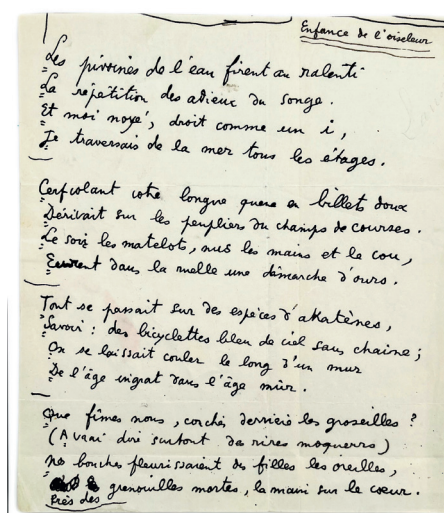 Enfance de l'oiseleur
Les pivoines de l'eau firent au ralenti
La répétition des adieux du songe.
Et moi noyé, droit comme un i,
Je traversais de la mer tous les étages.
Cerfvolant votre longue queue en billets doux
Dérivait sur les peupliers du champs de courses.
Le soir les matelots, nus les mains et le cou,
Eurent dans la ruelle une démarche d'ours.
Tout se passait sur des espèces d'akatènes,
Savoir : des bicyclettes bleu de ciel sans chaine ;
On se laissait couler le long d'un mur
De l'âge ingrat dans l'âge mûr.
Que fîmes nous, cachés derrière les groseilles ?
(A vrai dire surtout des rires moqueurs)
nos bouches fleurissaient des filles les oreilles,
grenouilles mortes, la main sur le cœur.
Près des